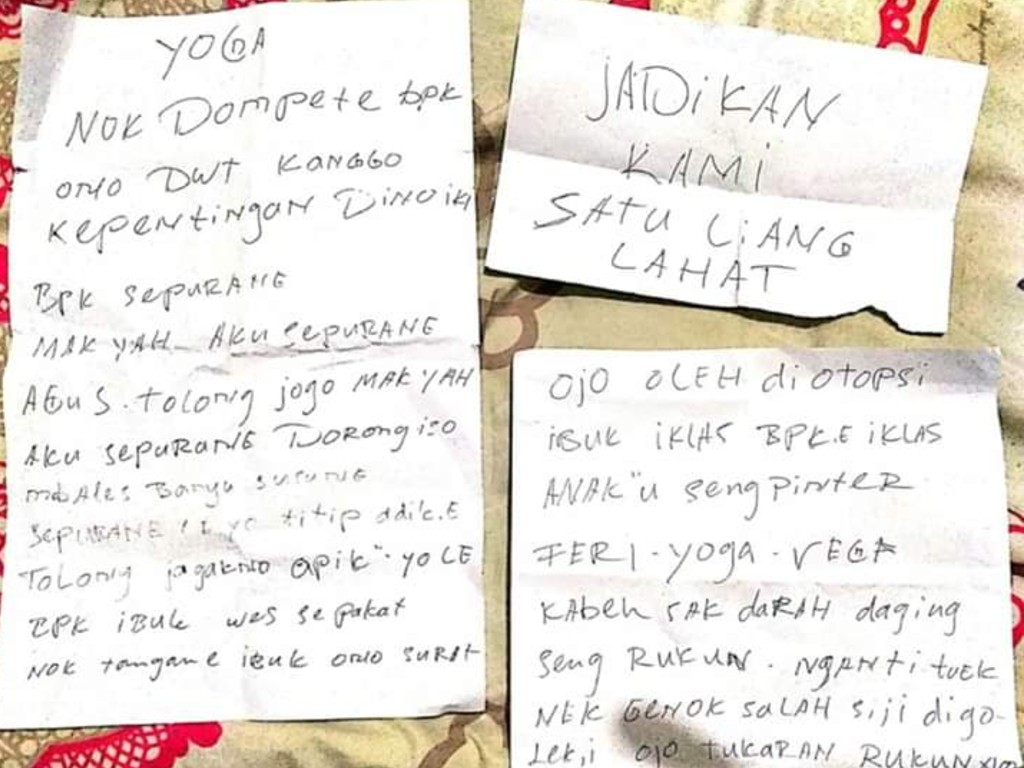 YOGA
NOK Dompete bpk
ONO DWT KANGGO
KEPENTINGAN DINO IKI
BPK SEPURANE
MAK YAH AKU SEPURANE
AGUS. tolong jogo MAK YAH
AKU SEPURANE DORONG ISO
mbAles Banyu susune
SEPURANE titip adik.E
TOLONG jagakno apik" yo LE
BPK iBUk wes sepakat
NOK tangane ibuk ono surat
JADIKAN
KAMI
SATU LIANG
LAHAT
OJO OLEH di otopsi
iBUK iKLAS BPK.E iKLAS
ANAK"u seng PiNTER
FERI-YOGA-VEGA
KABEH SAK daRAH daging
seng RUKUN. NGANTi tuek
NEK GENOK SALAH Siji digo-
LEKi OJO TUKARAN RUKUN